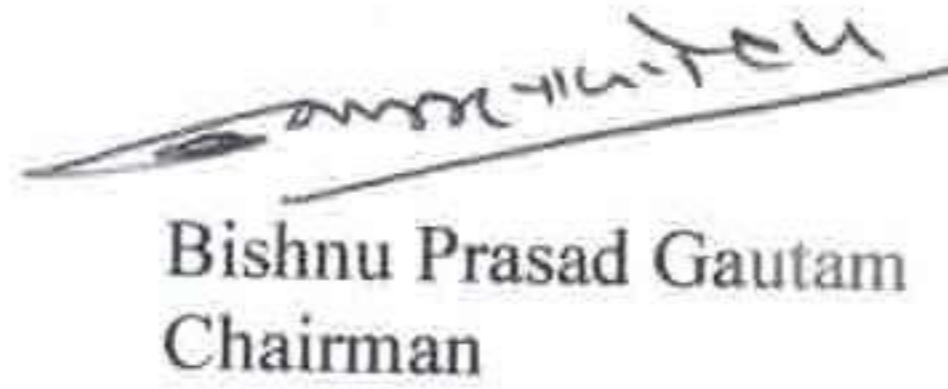 Bishnu Prasad Gautam
Chairman